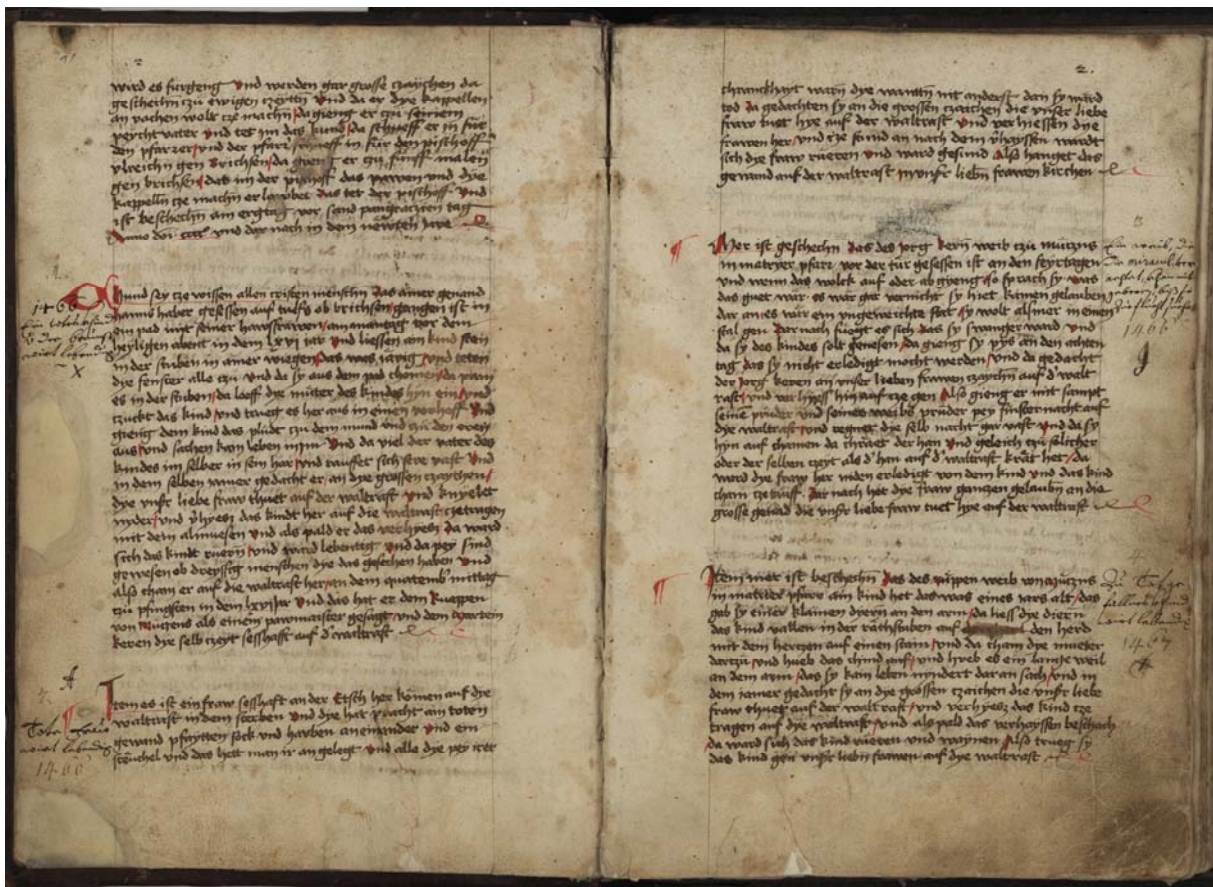 wird es furgeng Vnd werden gar grosse czaychen da
geschechn czu ewigen czeyttn Vnd da er dye kappellen
an vachen wolt cze machn da gieng er czu seinem
peycht vater vnd tet im das kund da schueff er in fur
den pfarrer vnd der pfarrer schueff in fur den pischoff
vlreichn gen Brichsen da gieng er czu funff malen
gen brichsen das im der pischoff das pawen vnd dye
kappelln cze machn erlawbet das tet der pischoff Vnd
ist beschechn am ergtag vor sand pangraczien tag
Anno dm cccc vnd dar nach in dem newten Jare
1466
Chund sey cze wissen allen cristen menschn das ainer genand
hanns haber gesessen auf tulfs ob brichsen gangen ist in
ein pad mit seiner hawsfrawen am mantag vor dem
heyligen abent in dem lxvj jar vnd liessen ain kind sten
in der stuben in ainer wiegen das was järig vnd teten
dye fenster alle czu vnd da sy aus dem pad chomen da prann
es in der stuben da loeff dye müter des kindes hyn ein vnd
czuckt das kind vnd trueg es her aus in einen vorhoff Vnd
gieng dem kind das plüdt czu dem mund vnd czu den oren
aus vnd sachen kain leben in im Vnd da viel der vater des
kindes im selber in sein har vnd rauffet sich sere vast Vnd
in dem selben jamer gedacht er an dye grossen czaychen
dye vnser liebe fraw thuet auf der waltrast Vnd knyelet
nyder vnd vhyesz das kindt her auf die waltrast czetragen
mit dem almuesen vnd als pald er das verhyesz da ward
sich das kindt ruern vnd ward lebentig Vnd da pey sind
gewesen ob dreyssig menschen dye das gesechen haben Vnd
also cham er auf die waltrast her an dem quatemb mittag
czu pfingsten in dem lxvj jar Vnd das hat er dem knappen
von Muczens als einem pawmaister gesagt vnd dem
keren dye selb czeyt sesshaft auf d' waltrast
Item es ist ein fraw sesshaft an der Etsch her komen auf dye
waltrast in dem sterben Vnd dye hat pracht ain toten
gewand pfaytten sock vnd hawben aneinander Vnd ein
steuchel vnd das hett man ir an gelegt Vnd alle dye pey irer
1466
2.
chranckhayt warn dye wantn nit anderst dan sy ward
tod da gedachten sy an die grossen czaichen die vnser liebe
fraw tuet hye auf der waltrast Vnd verhiessen dye
frawen her vnd cze stund an nach dem vhayssen wardt
sich dye fraw rueren vnd ward gesund Also hanget das
gewand auf der waltrast in vnser liebn frawen kirchen
Mer ist geschechn das des jorg kern weib czu müczns
in matryer pfarr vor der tur gesessen ist an den feyrtagen
vnd wenn das volck auf oder ab gyeng so sprach sy was
das guet war es war gar vernicht sy hiet kainen gelauben
dar an es wär ein vngeweichte stat sy wolt als mer in einen
stal gen Dar nach fuegt es sich das sy swanger ward Vnd
da sy des kindes solt genesen da gieng sy pys an den achten
tag das sy nicht erledigt mocht werden vnd da gedacht
der Jorg keren an vnser lieben frawen czaychn auf d' walt
rast vnd verhyesz hin auf cze gen Also gieng er mit sampt
seine pruder vnd seines weibs pruder pey finster nacht auf
dye waltrast vnd regnet dye selb nacht gar vast Vnd da sy
hyn auf chamen da chraet der han Vnd geleich czu solicher
oder der selben czeyt als d' han auf d' waltrast krät het da
ward dye fraw her niden erledigt von dem kind vnd das kind
cham cze tauff Dar nach het dye fraw ganczen gelaubn an die
grosse genad die vnser liebe fraw tuet hye auf der waltrast
1466
Item mer ist beschechn das des püppen weib von müczns
in matrier pfarr ain kind het das was eines jars alt das
gab sy einer klainen dyern an den arm da liess dye diern
das kind vallen in der rachstuben auf den herd
mit dem herczen auf einen stain vnd da cham dye mueter
darczu vnd hueb das chind auf vnd hueb es ein lange weil
an dem arm das sy kain leben nyndert dar an sach vnd in
dem jamer gedacht sy an dye grossen czaichen die vnser liebe
fraw thuet auf der waltrast vnd verhyesz das kind cze
tragen auf dye waltrast vnd als pald das verhayssen beschach
da ward sich das kind rueren vnd waynen Also trueg sy
das kind gen vnser liebn frawen auf dye waltrast
1467